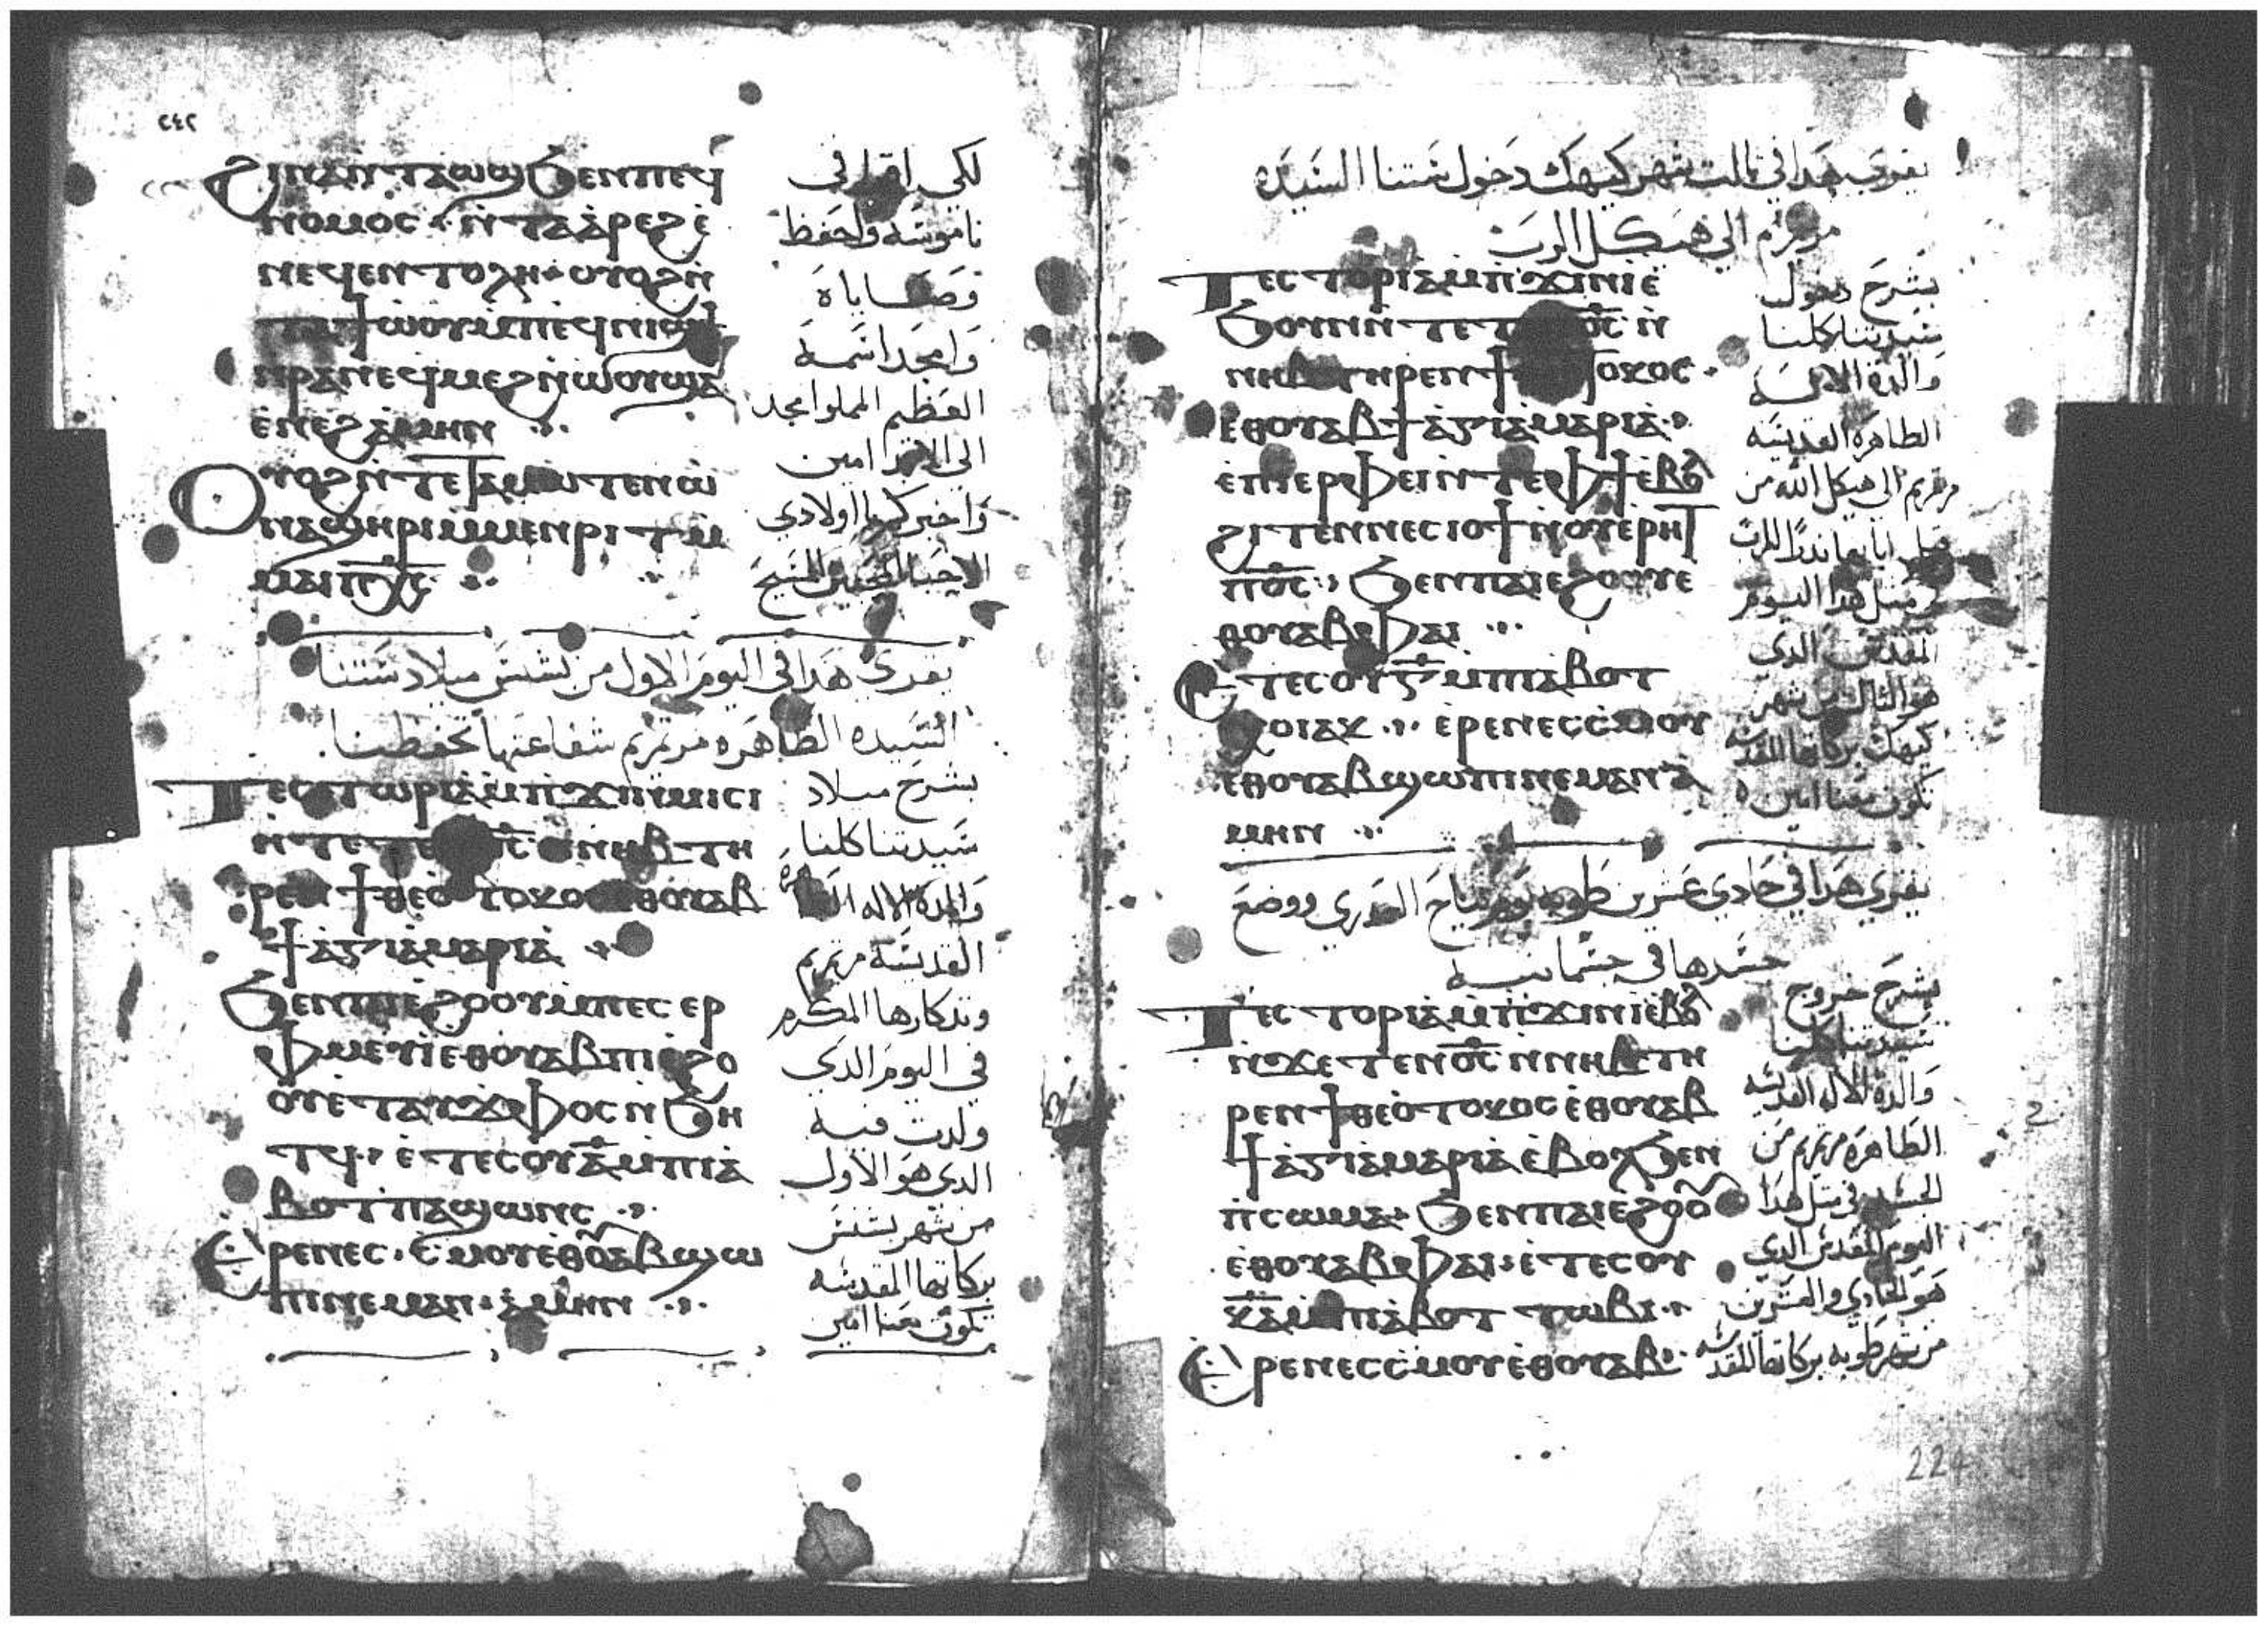 ٢٤٢
ϩⲓⲛⲁ ⲛ̀ⲧⲁⲱϣ ϧⲉⲛ ⲡⲉϥ
ⲛⲟⲙⲟⲥ ⲛ̀ⲧⲁⲁ̀ⲣⲉϩ ⲉ̀
ⲛⲉϥⲉⲛⲧⲟⲗⲏ ⲟⲩⲟϩ ⲛ̀
ⲧⲁϯⲱ̀ⲟⲩ ⲙ̀ⲡⲉϥⲛⲓϣϯ
ⲛ̀ⲣⲁⲛ ⲉϥⲙⲉϩ ⲛ̀ⲱ̀ⲟⲩ ϣⲁ
ⲉ̀ⲛⲉϩ ⲁ̀ⲙⲏⲛ
ⲟⲩⲟϩ ⲛ̀ⲧⲉ ⲧⲁⲙⲱⲧⲉⲛ ⲱ̀
ⲛⲁϣⲏⲣⲓ ⲙ̀ⲙⲉⲛⲣⲓⲧ ⲙ̀
ⲙⲁⲓ ⲡⲭ̅ⲥ̅
لكي اقرا في
ناموسه واحفظ
وصاياه
وامجد اسمه
العظيم المملوا مجد
الى الابد امين
واخبركم يا اولادي
الاحبا المحبين المسيح
يقرى هذا في اليوم الاول من بشنس ميلاد ستنا
السيده الطاهره مرتمريم شفاعتها تحفظنا
ⲧⲉⲥⲧⲱⲣⲓⲁ ⲙ̀ⲡ̀ϫⲓⲛⲙⲓⲥⲓ
ⲛ̀ⲧⲉ ⲧⲉⲛⲟ̅ⲥ̅ ⲛ̀ⲛⲏⲃ ⲧⲏ
ⲣⲉⲛ ϯⲑⲉⲟ̀ⲧⲟⲕⲟⲥ ⲉ̀ⲑⲟⲩⲁⲃ
ϯⲁ̀ⲅⲓⲁ̀ ⲙⲁⲣⲓⲁ̀
ϧⲉⲛ ⲡⲓⲉ̀ϩⲟⲟⲩ ⲙ̀ⲡⲉⲥ ⲉⲣ
ⲫⲙⲉⲩⲓ̀ ⲉⲑⲟⲩⲁⲃ ⲡⲓⲉ̀ϩⲟ
ⲟⲩ ⲉ̀ⲧⲁⲩϫⲫⲟⲥ ⲛ̀ϧⲏ
ⲧϥ ⲉ̀ⲧⲉ ⲥⲟⲩⲁ̅ ⲙ̀ⲡⲓⲁ̀
ⲃⲟⲧ ⲡⲁϣⲱⲛⲥ
ⲉ̀ⲣⲉ ⲛⲉⲥⲥ̀ⲙⲟⲩ ⲉ̀ⲑⲟ̅ⲁⲃ ϣⲱ
ⲡⲓ ⲛⲉⲙⲁⲛ ⲁ̀ⲙⲏⲛ
بشرح ميلاد
سيدتنا كلنا
والدة الاله
القديسه مرتمريم
وتدكارها المكرم
في اليوم الدي
ولدت فيه
الدى هو الاول
من شهر بشنس
بركاتها المقدسه
تكون معنا امين
يقرى هدا في تالت شهر كيهك دخول ستنا السيده
مرتمريم الي هيكل الرب
ⲧⲉⲥⲧⲟⲣⲓⲁ ⲙ̀ⲡ̀ϫⲓⲛⲓ̀ ⲉ̀
ϧⲟⲩⲛ ⲛ̀ⲧⲉ ⲟ̅ⲥ̅ ⲛ̀
ⲛⲏⲃ ⲧⲏⲣⲉⲛ ϯ ⲧⲟⲕⲟⲥ
ⲉ̀ⲑⲟⲩⲁⲃ ϯⲁ̀ⲅⲓⲁ̀ ⲙⲁⲣⲓⲁ̀
ⲉ̀ⲡⲓⲉⲣⲫⲉⲓ ⲛ̀ⲧⲉ ⲫϯ ⲉ̀ⲃⲟⲗ
ϩⲓⲧⲉⲛ ⲛⲉⲥⲓⲟϯ ⲛ̀ⲟⲩⲉⲣⲏϯ
ⲡⲟ̅ⲥ̅ ϧⲉⲛ ⲡⲁⲓⲉϩⲟⲟⲩ ⲉ
ⲑⲟⲩⲁⲃ ⲫⲁⲓ
ⲉ̀ⲧⲉ ⲥⲟⲩⲅ̅ ⲙ̀ⲡⲓⲁ̀ⲃⲟⲧ
ⲭⲟⲓⲁⲕ ⲉ̀ⲣⲉ ⲛⲉⲥⲥ̀ⲙⲟⲩ
ⲉ̀ⲑⲟⲩⲁⲃ ϣⲱⲡⲓ ⲛⲉⲙⲁⲛ ⲁ̀
ⲙⲏⲛ
بشرح دخول
سيدتنا كلنا
والدة الاله
الطاهره القديسه
مرتمريم الى هيكل الله من
قبل ابايها ندرا للرب
في متل هدا اليوم
المقدس الدي
هو التالت من شهر
كيهك بركاتها المقدسه
تكون معنا امين
يقرى هدا في حادي عشرين طوبه يوم نياح العدرى ووضع
جسدها في جسمانيه
ⲧⲉⲥⲧⲟⲣⲓⲁ ⲙ̀ⲡ̀ϫⲓⲛⲓ̀ ⲉ̀ⲃⲟⲗ
ⲛ̀ϫⲉ ⲧⲉⲛⲟ̅ⲥ̅ ⲛ̀ⲛⲏⲃ ⲧⲏ
ⲣⲉⲛ ϯⲑⲉⲟ̀ⲧⲟⲕⲟⲥ ⲉ̀ⲑⲟⲩⲁⲃ
ϯⲁ̀ⲅⲓⲁ̀ ⲙⲁⲣⲓⲁ̀ ⲉ̀ⲃⲟⲗ ϧⲉⲛ
ⲡ̀ⲥⲱⲙⲁ ϧⲉⲛ ⲡⲁⲓⲉ̀ϩⲟⲟ̅
ⲉ̀ⲑⲟⲩⲁⲃ ⲫⲁⲓ ⲉ̀ⲧⲉ ⲥⲟⲩ
ⲕ̅ⲁ̅ ⲙ̀ⲡⲓⲁ̀ⲃⲟⲧ ⲧⲱⲃⲓ
ⲉ̀ⲣⲉ ⲛⲉⲥⲥ̀ⲙⲟⲩ ⲉ̀ⲑⲟⲩⲁⲃ
بشرح خروج
سيدتنا كلنا
والدة الاله القديسه
الطاهره مرتمريم من
الجسد في متل هدا
اليوم المقدس الدي
هو الحادي والعشرين
من شهر طوبه بركاتها المقدسه
224